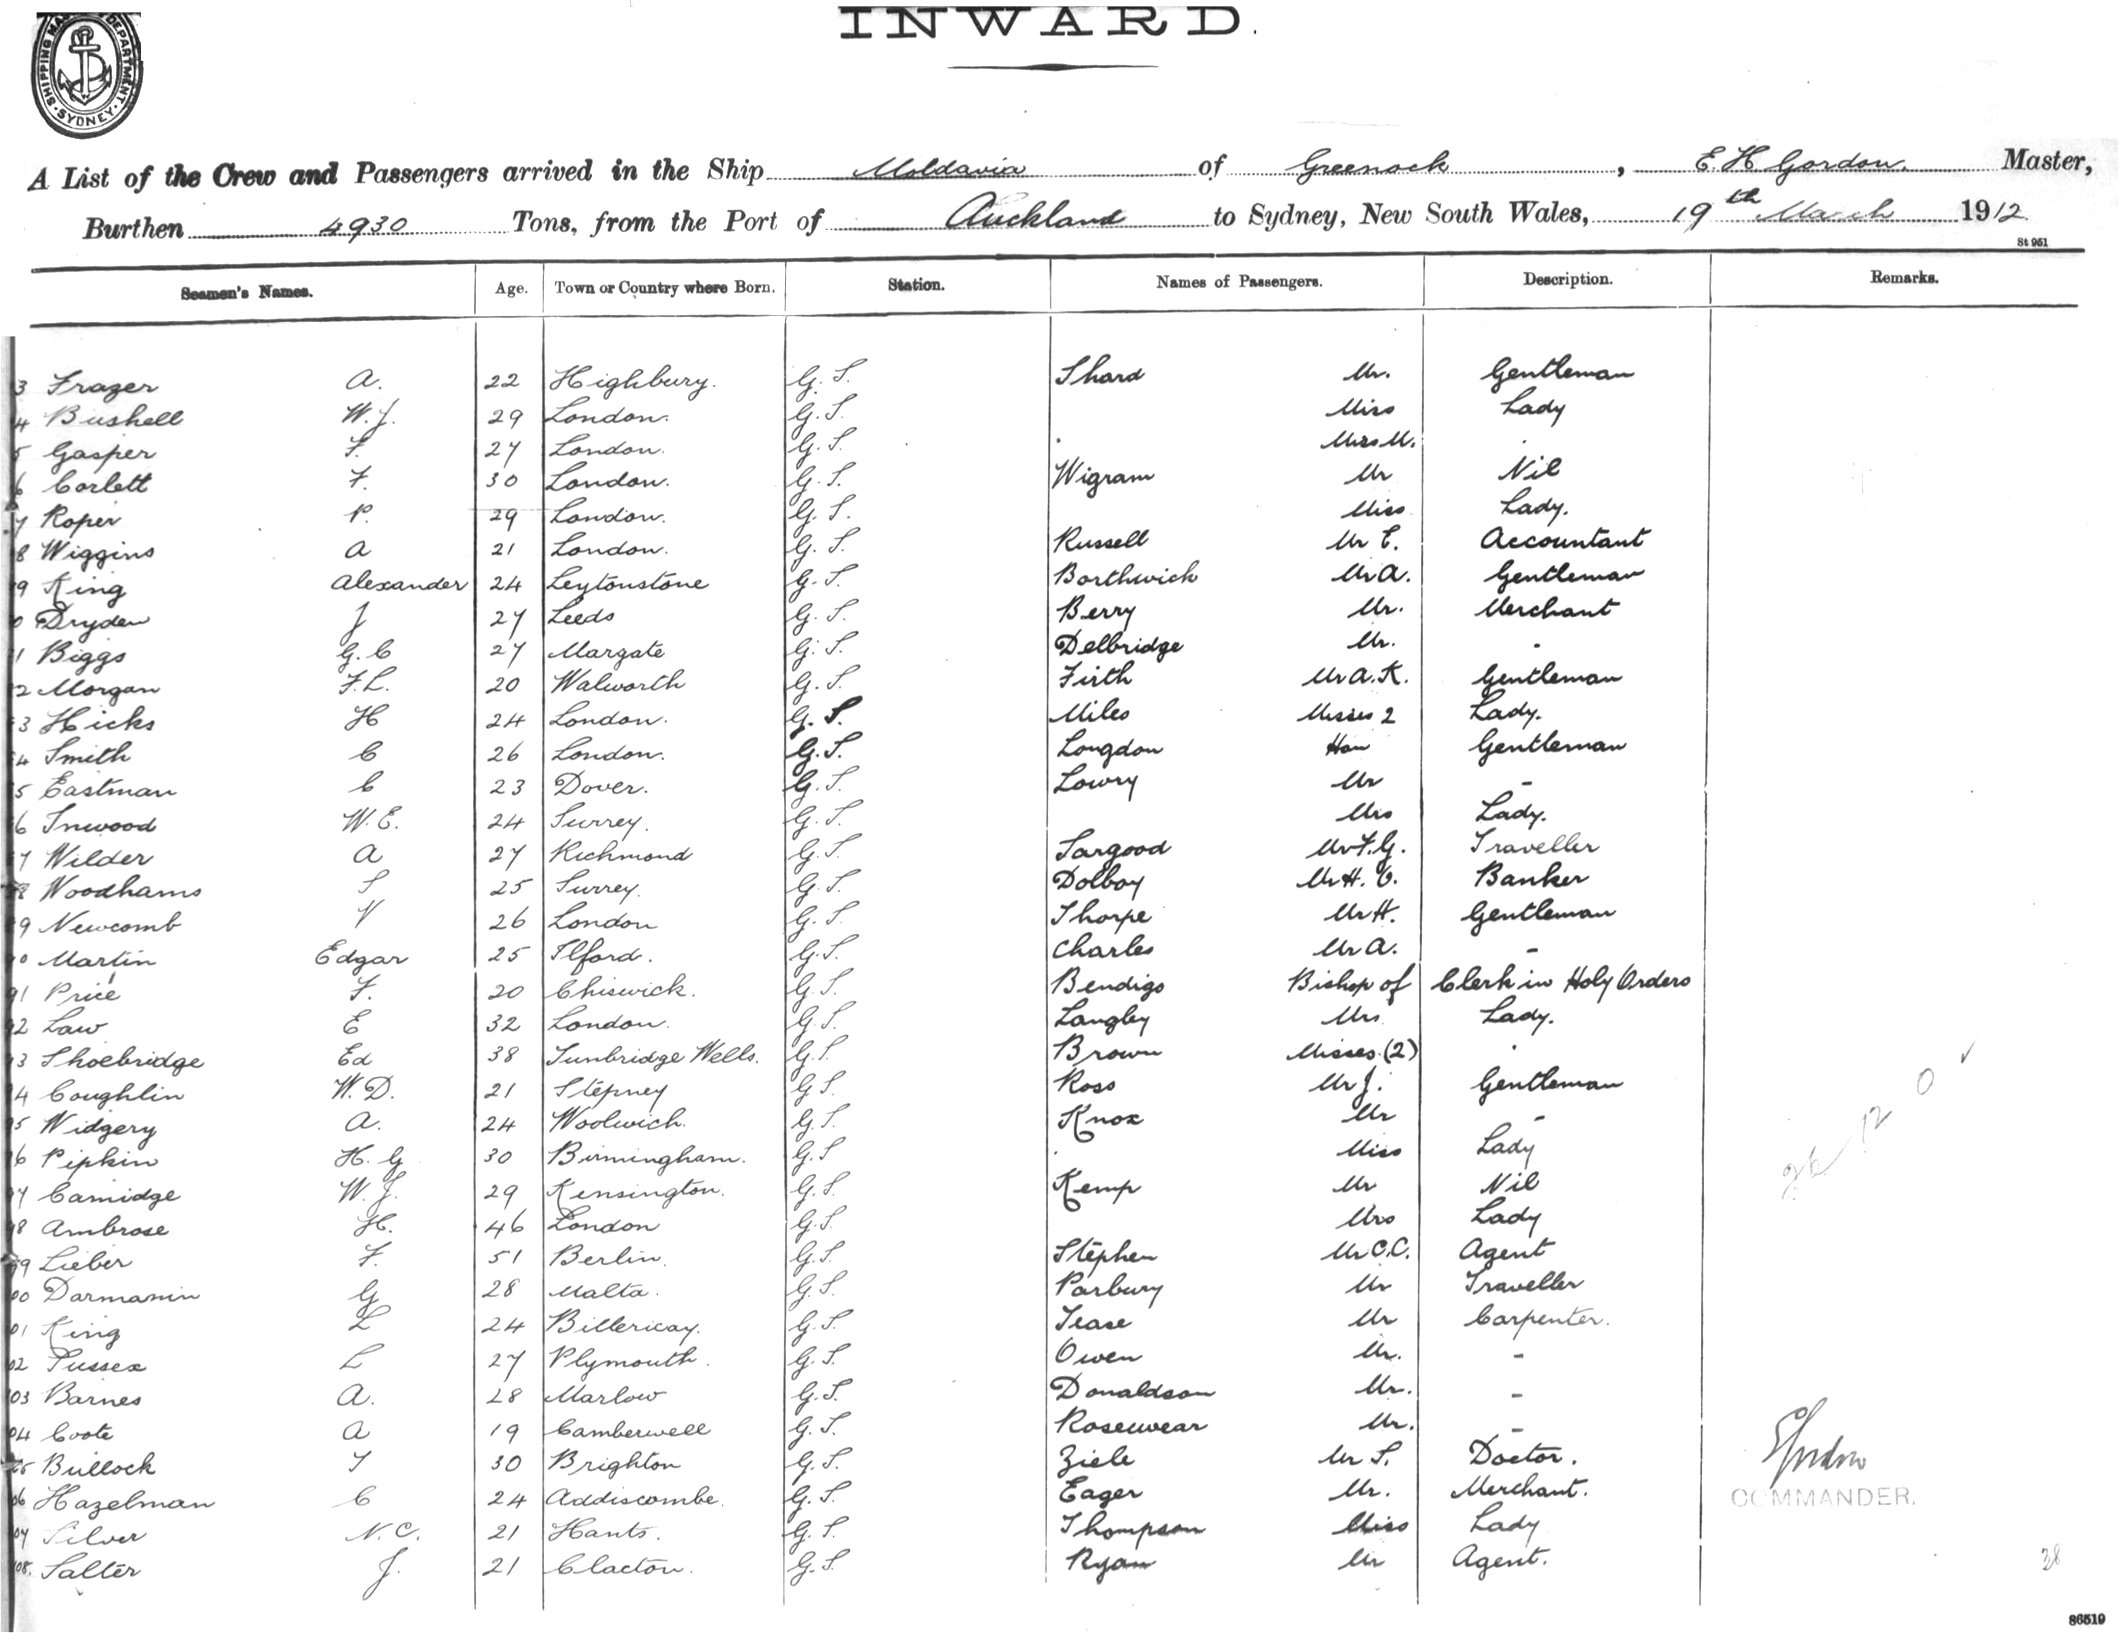 INWARD.
SHIPPING MASTER'S DEPARTMENT. SYDNEY
A List of the Crew and Passengers arrived in the Ship Moldavia of Greenock, E. H. Gordon. Master,
Burthen 4930 Tons, from the Port of Auckland to Sydney, New South Wales, 19th March 1912
St 951
Seamen's Names. Age. Town or Country where Born. Station. Names of Passengers. Description. Remarks.
3 Frazer A. 22 Highbury. G. S. Shard Mr. Gentleman
4 Bushell W. J. 29 London. G. S. Miss Lady
5 Gasper F. 27 London. G. S. . Mrs M. .
6 Corlett F. 30 London. G. S. Wigram Mr Nil
7 Roper P. 29 London. G. S. Miss Lady.
8 Wiggins A 21 London. G. S. Russell Mr E. Accountant
9 King Alexander 24 Leytonstone G. S. Borthwick Mr A. Gentleman
0 Dryden J 27 Leeds G. S. Berry Mr. Merchant
1 Biggs G. C 27 Margate G. S. Delbridge Mr. -
2 Morgan F. L. 20 Walworth G. S. Firth Mr A. K. Gentleman
3 Hicks H 24 London. G. S. Miles Misses 2 Lady.
4 Smith C 26 London. G. S. Longdon Hon Gentleman
5 Eastman C 23 Dover. G. S. Lowry Mr -
6 Inwood W. E. 24 Surrey. G. S. Mrs Lady.
7 Wilder A 27 Richmond G. S. Sargood Mr F. G. Traveller
8 Woodhams S 25 Surrey. G. S. Dolboy Mr H. C. Banker
9 Newcomb V 26 London G. S. Thorpe Mr H. Gentleman
0 Martin Edgar 25 Ilford. G. S. Charles Mr A. -
91 Price F. 20 Chiswick. G. S. Bendigo Bishop of Clerk in Holy Orders
92 Law E 32 London. G. S. Langley Mrs Lady.
93 Shoebridge Ed 38 Tunbridge Wells. G. S. Brown Misses (2) .
94 Coughlin W. D. 21 Stepney G. S. Ross Mr J. Gentleman
95 Widgery A. 24 Woolwich. G. S. Knox Mr -
96 Pipkin H. G 30 Birmingham. G. S . Miss Lady
97 Camidge W. J. 29 Kensington. G. S. Kemp Mr Nil
98 Ambrose H. 46 London G. S. Mrs Lady
99 Lieber F. 51 Berlin. G. S. Stephen Mr C. C. Agent
00 Darmanin G 28 Malta. G. S. Parbury Mr Traveller
01 King L 24 Billericay. G. S. Tease Mr Carpenter.
02 Sussex L 27 Plymouth. G. S. Owen Mr. -
03 Barnes A. 28 Marlow G. S. Donaldson Mr. -
04 Coote A 19 Camberwell G. S. Rosewear Mr. -
05 Bullock T 30 Brighton G. S. Ziele Mr S. Doctor.
06 Hazelman C 24 Addiscombe. G. S. Eager Mr. Merchant.
07 Silver N. C. 21 Hants. G. S. Thompson Miss Lady
08. Salter J. 21 Clacton. G. S. Ryan Mr Agent.
12 0 ✓
EGordon
COMMANDER.
38
86519